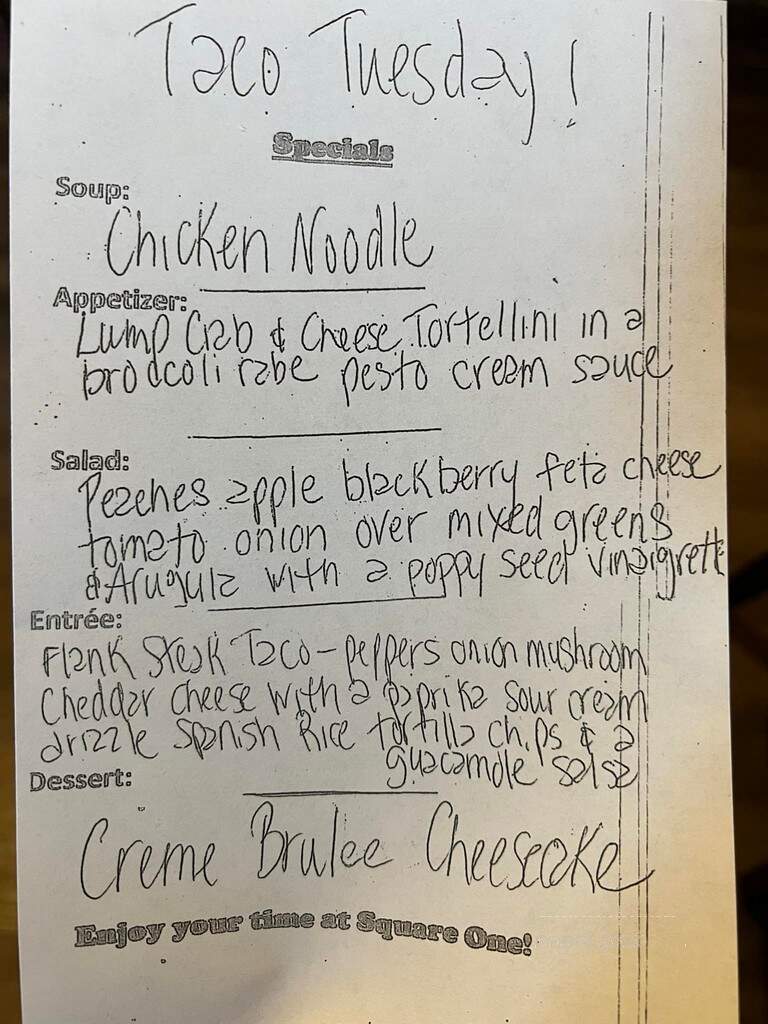 Taco Tuesday!
Specials
Soup:
Chicken Noodle
Appetizer:
Lump Crab & Cheese Tortellini in a
broccoli rabe pesto cream sauce
Salad:
Peaches apple blackberry feta cheese
tomato onion over mixed greens
& Arugula with a poppy seed vinaigrette
Entrée:
Flank Steak Taco - peppers onion mushroom
Cheddar cheese with a paprika sour cream
drizzle spanish Rice tortilla chips & a
guacamole salsa
Dessert:
Creme Brulee Cheesecake
Enjoy your time at Square One!